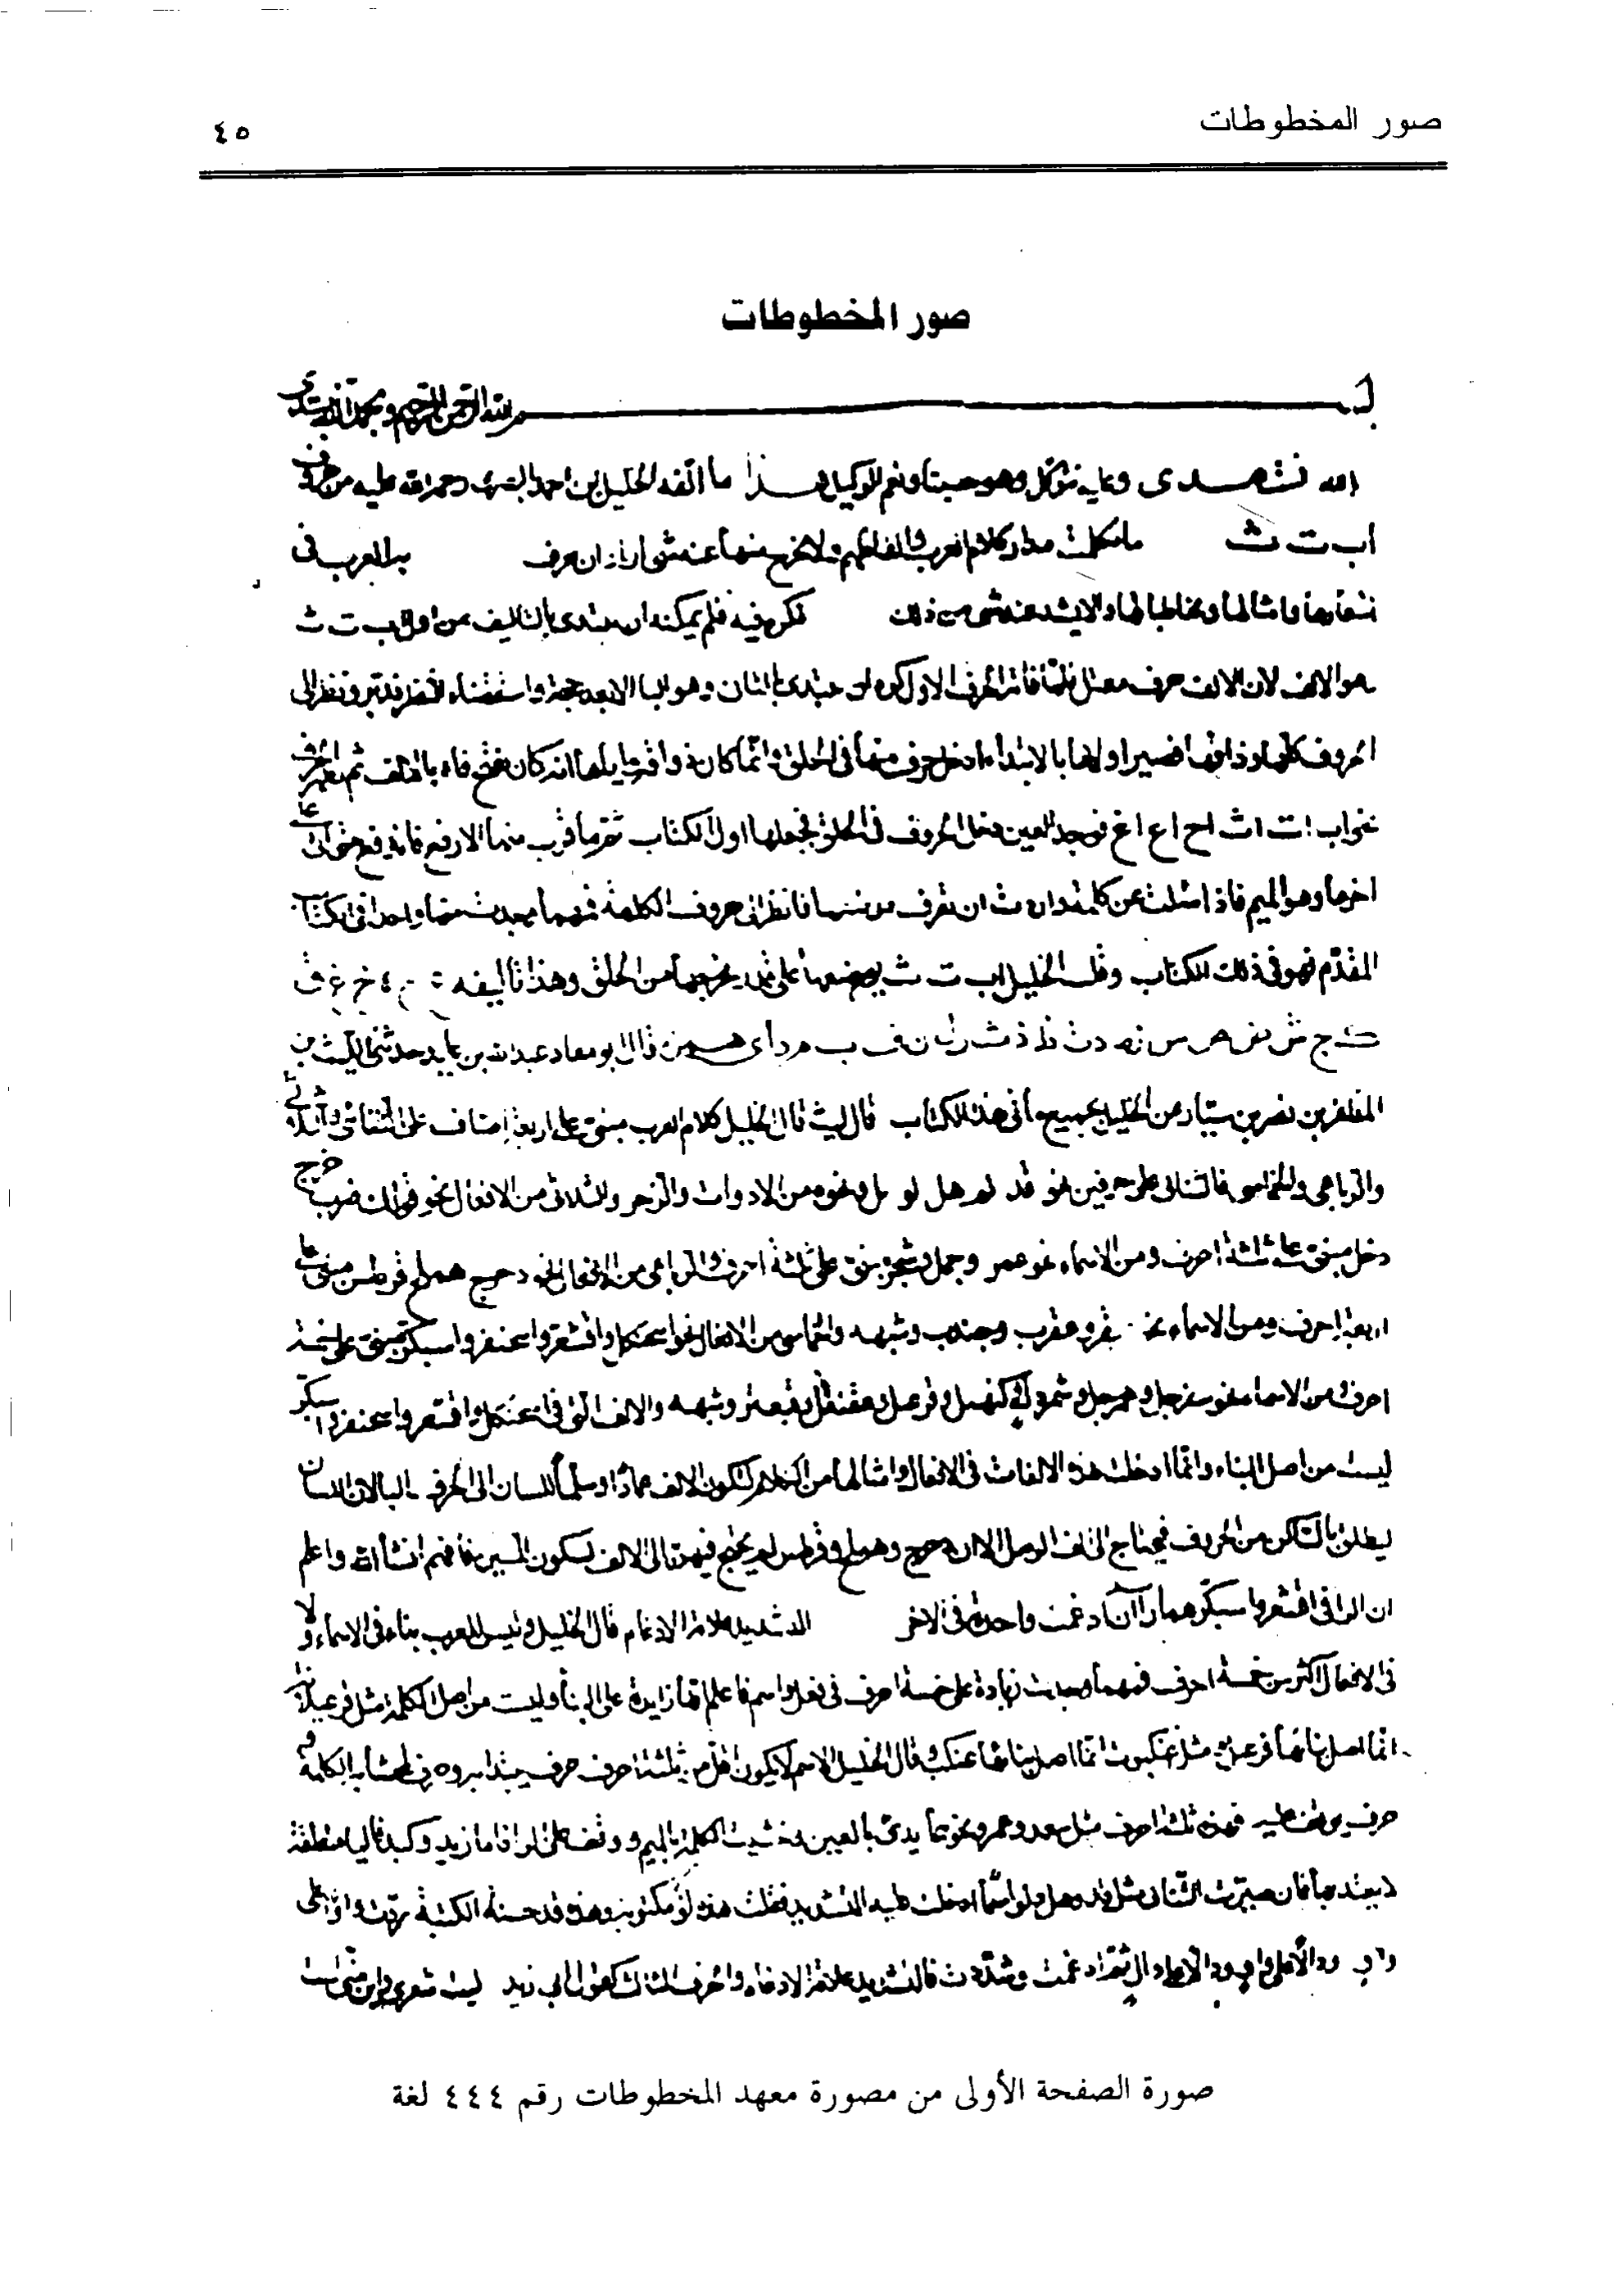 صور المخطوطات
٤٥
صور المخطوطات
بسم الله الرحمن الرحيم وبحمد الله نبتدئ
الله نستهدى وعليه نتوكل وهو حسبنا ونعم الوكيل هذا ما الفه الخليل بن احمد البصرى رحمة الله عليه من حروف
اب ت ث مدار كلام العرب والفاظهم ولا يخرج منها عنه شى اراد ان يعرف العرب فى
اشعارها وامثالها ومخاطباتها والا يشذ عنه شى من ذلك فكر فيه فلم يمكنه ان يبتدى بالتاليف من اول اب ت ث
هو الالف لان الالف حرف معتل فلما فاته الحرف الاول كره ان يبتدى بالثانى وهو البا الا بعد حجة واستقصاء النظر فدبر ونظر الى
الحروف كلها وذاقها فصير اولاها بالابتداء ادخل حرف منها فى الحلق وانما كان ذواقه اياها انه كان يفتح فاه بالالف ثم يظهر الحرف
نحو اب ات اث اح اع اغ فوجد العين الحروف فى الحلق فجعلها اول الكتاب ثم ما قرب منها الارفع فالارفع حتى اتى على
اخرها وهو الميم فاذا سئلت عن كلمة واردت ان تعرف موضعها فانظر الى حروف الكلمة فمهما وجدت منها واحدا فى الكتاب
المقدم فهو فى ذلك الكتاب وقلب الخليل اب ت ث فوضعها على قدر مخرجها من الحلق وهذا تاليفه ع ح ه خ غ ق
ك ج ش ض ص س ز ط د ت ظ ذ ث ر ل ن ف ب م و ا ى همزة قال ابو معاذ عبد الله بن عايد حدثنى الليث بن
المظفر بن نصر بن سيار عن الخليل بجميع ما فى هذا الكتاب قال ليث قال الخليل كلام العرب مبنى على اربعة اصناف على الثنائى والثلاثى
والرباعى والخماسى فالثنائى على حرفين نحو قد لم هل لو بل ونحوه من الادوات والزجر والثلاثى من الافعال نحو قولك ضرب خرج
دخل مبنى على ثلثة احرف ومن الاسماء نحو عمر وجمل وشجر مبنى على ثلثة احرف والرباعى من الافعال نحو دحرج هملج قرطس مبنى على
اربعة احرف ومن الاسماء نحو عبقر وعقرب وجندب وشبهه والخماسى من الافعال نحو اسحنكك واقشعر واسحنفر واسبكر مبنى على خمسة
احرف ومن الاسماء نحو سفرجل وهمرجل وشمردل وكنهبل وقرعبل وعقنقل وقبعثر وشبهه والالف التى فى اسحنكك واقشعر واسحنفر واسبكر
ليست من اصل البناء وانما ادخلت هذه الالفات فى الافعال وامثالها من الكلام لتكون الالف عمادا وسلما للسان الى الحرف البا لان اللسان
لا ينطلق بالساكن من الحروف فيحتاج الى الف الوصل الا ان دحرج وهملج وقرطس لم يحتج فيهن الى الالف لسكون السين فافهم انشا الله واعلم
ان الرا فى اقشعر واسبكر هما راآن ادغمت واحدة فى الاخر التشديد علامة الادغام قال الخليل وليس للعرب بناء فى الاسماء ولا
فى الافعال اكثر من خمسة احرف فمهما وجدت زيادة على خمسة احرف فى فعل واسم فاعلم انها زايدة على البنا وليست من اصل الكلمة مثل قرعبلانة
انما اصل بنائها قرعبل مثل عنكبوت انما اصل بنائها عنكب وقال الخليل الاسم لا يكون اقل من ثلثة احرف حرف يبتدا به وحرف يحشا به الكلمة و
حرف يوقف عليه فهذه ثلثة احرف مثل سعد وعمرو ونحوهما بدئ بالعين وحشيت الكلمة بالميم ووقف على الرا فاما زيد وكيد فاليا متعلقة
لا يعتد بها فان صيرت الثنائى مثل قد وهل ولو اسما ادخلت عليه التشديد فقلت هذه لو مكتوبة وهذه قد حسنة الكتبة زدت واوا على
واو ودالا على دال ثم ادغمت وشددت فالتشديد علامة الادغام والحرف الثالث كقول ابى زبيد ليت شعرى واين منى ليت
صورة الصفحة الأولى من مصورة معهد المخطوطات رقم ٤٤٤ لغة